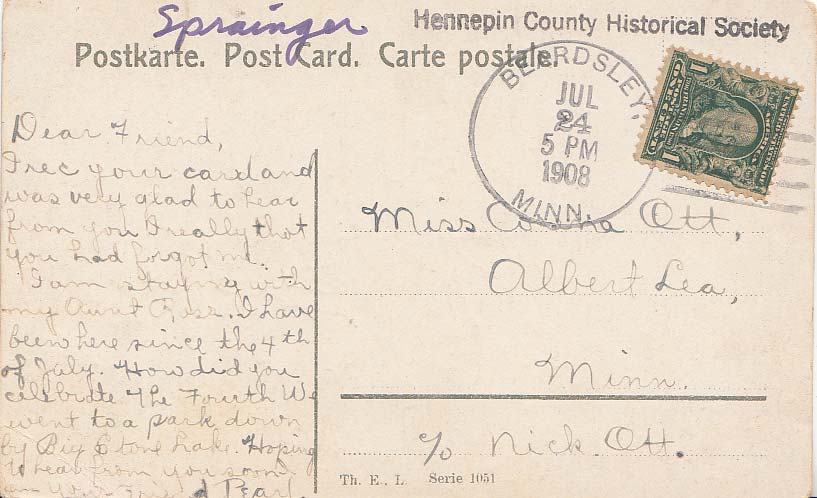 Sprainger
Hennepin County Historical Society
Postkarte. Post Card. Carte postale.
BEARDSLEY,
JUL
24
5 PM
1908
MINN.
1
1
Dear Friend,
I rec your card and
was very glad to hear
from you I really that
you had forgot me.
I am staying with
my Aunt Rose. I have
been here since the 4th
of July. How did you
celebrate The Fourth We
went to a park down
by Big Stone Lake. Hoping
to hear from you soon
am your Friend Pearl.
Miss Ott,
Albert Lea,
Minn.
c/o Nick Ott.
Th. E. L. Serie 1051